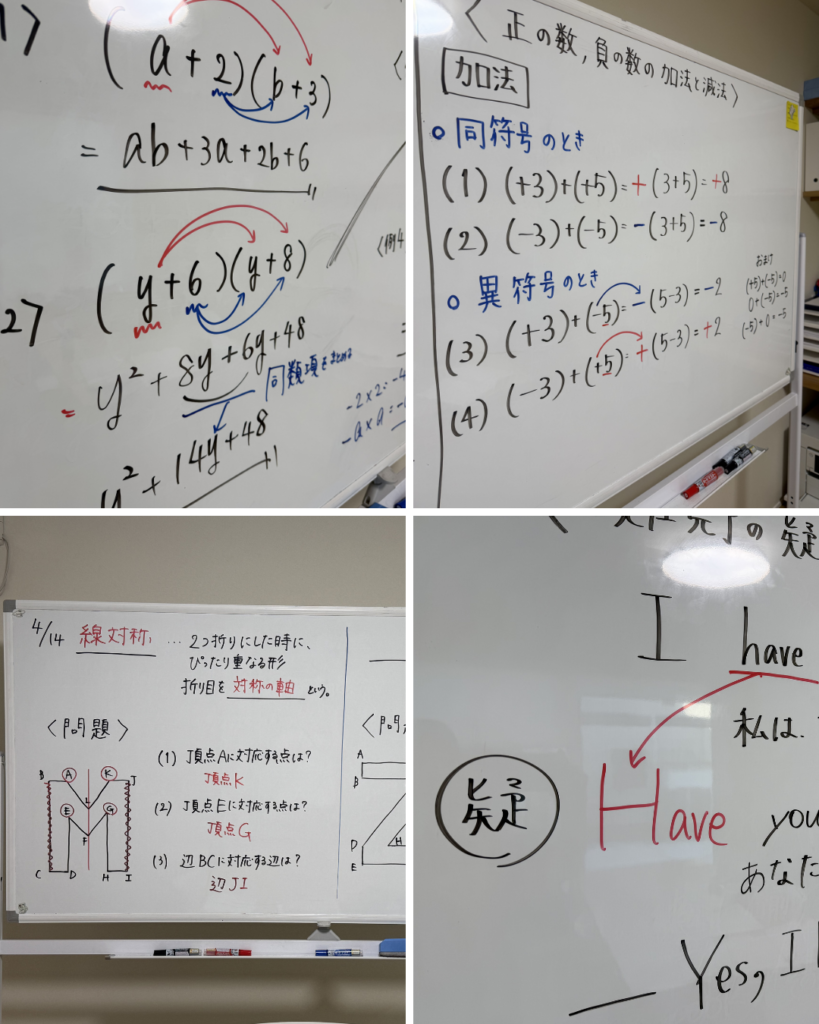 1>
(a+2)(b+3)
= ab+3a+2b+6
2>
(y+6)(y+8)
= y²+8y+6y+48
同類項をまとめる
y²+14y+48
-2×2=-4
-a×a=
<例4
<正の数,負の数の加法と減法>
加法
○ 同符号のとき
(1) (+3)+(+5)=+(3+5)=+8
(2) (-3)+(-5)=-(3+5)=-8
○ 異符号のとき
(3) (+3)+(-5)=-(5-3)=-2
(4) (-3)+(+5)=+(5-3)=+2
おまけ
(+5)+(-5)=0
0+(-5)=-5
(-5)+0=-5
4/14 線対称 … 2つ折りにした時に、
ぴったり重なる形
折り目を 対称の軸 という。
<問題>
(1) 頂点Aに対応する点は?
頂点K
(2) 頂点Eに対応する点は?
頂点G
(3) 辺BCに対応する辺は?
辺JI
B A K J
L
E G
F
C D H I
<問
A
B
D
H
E
の疑
I have
私は、
疑
Have you
あなた
Yes, I